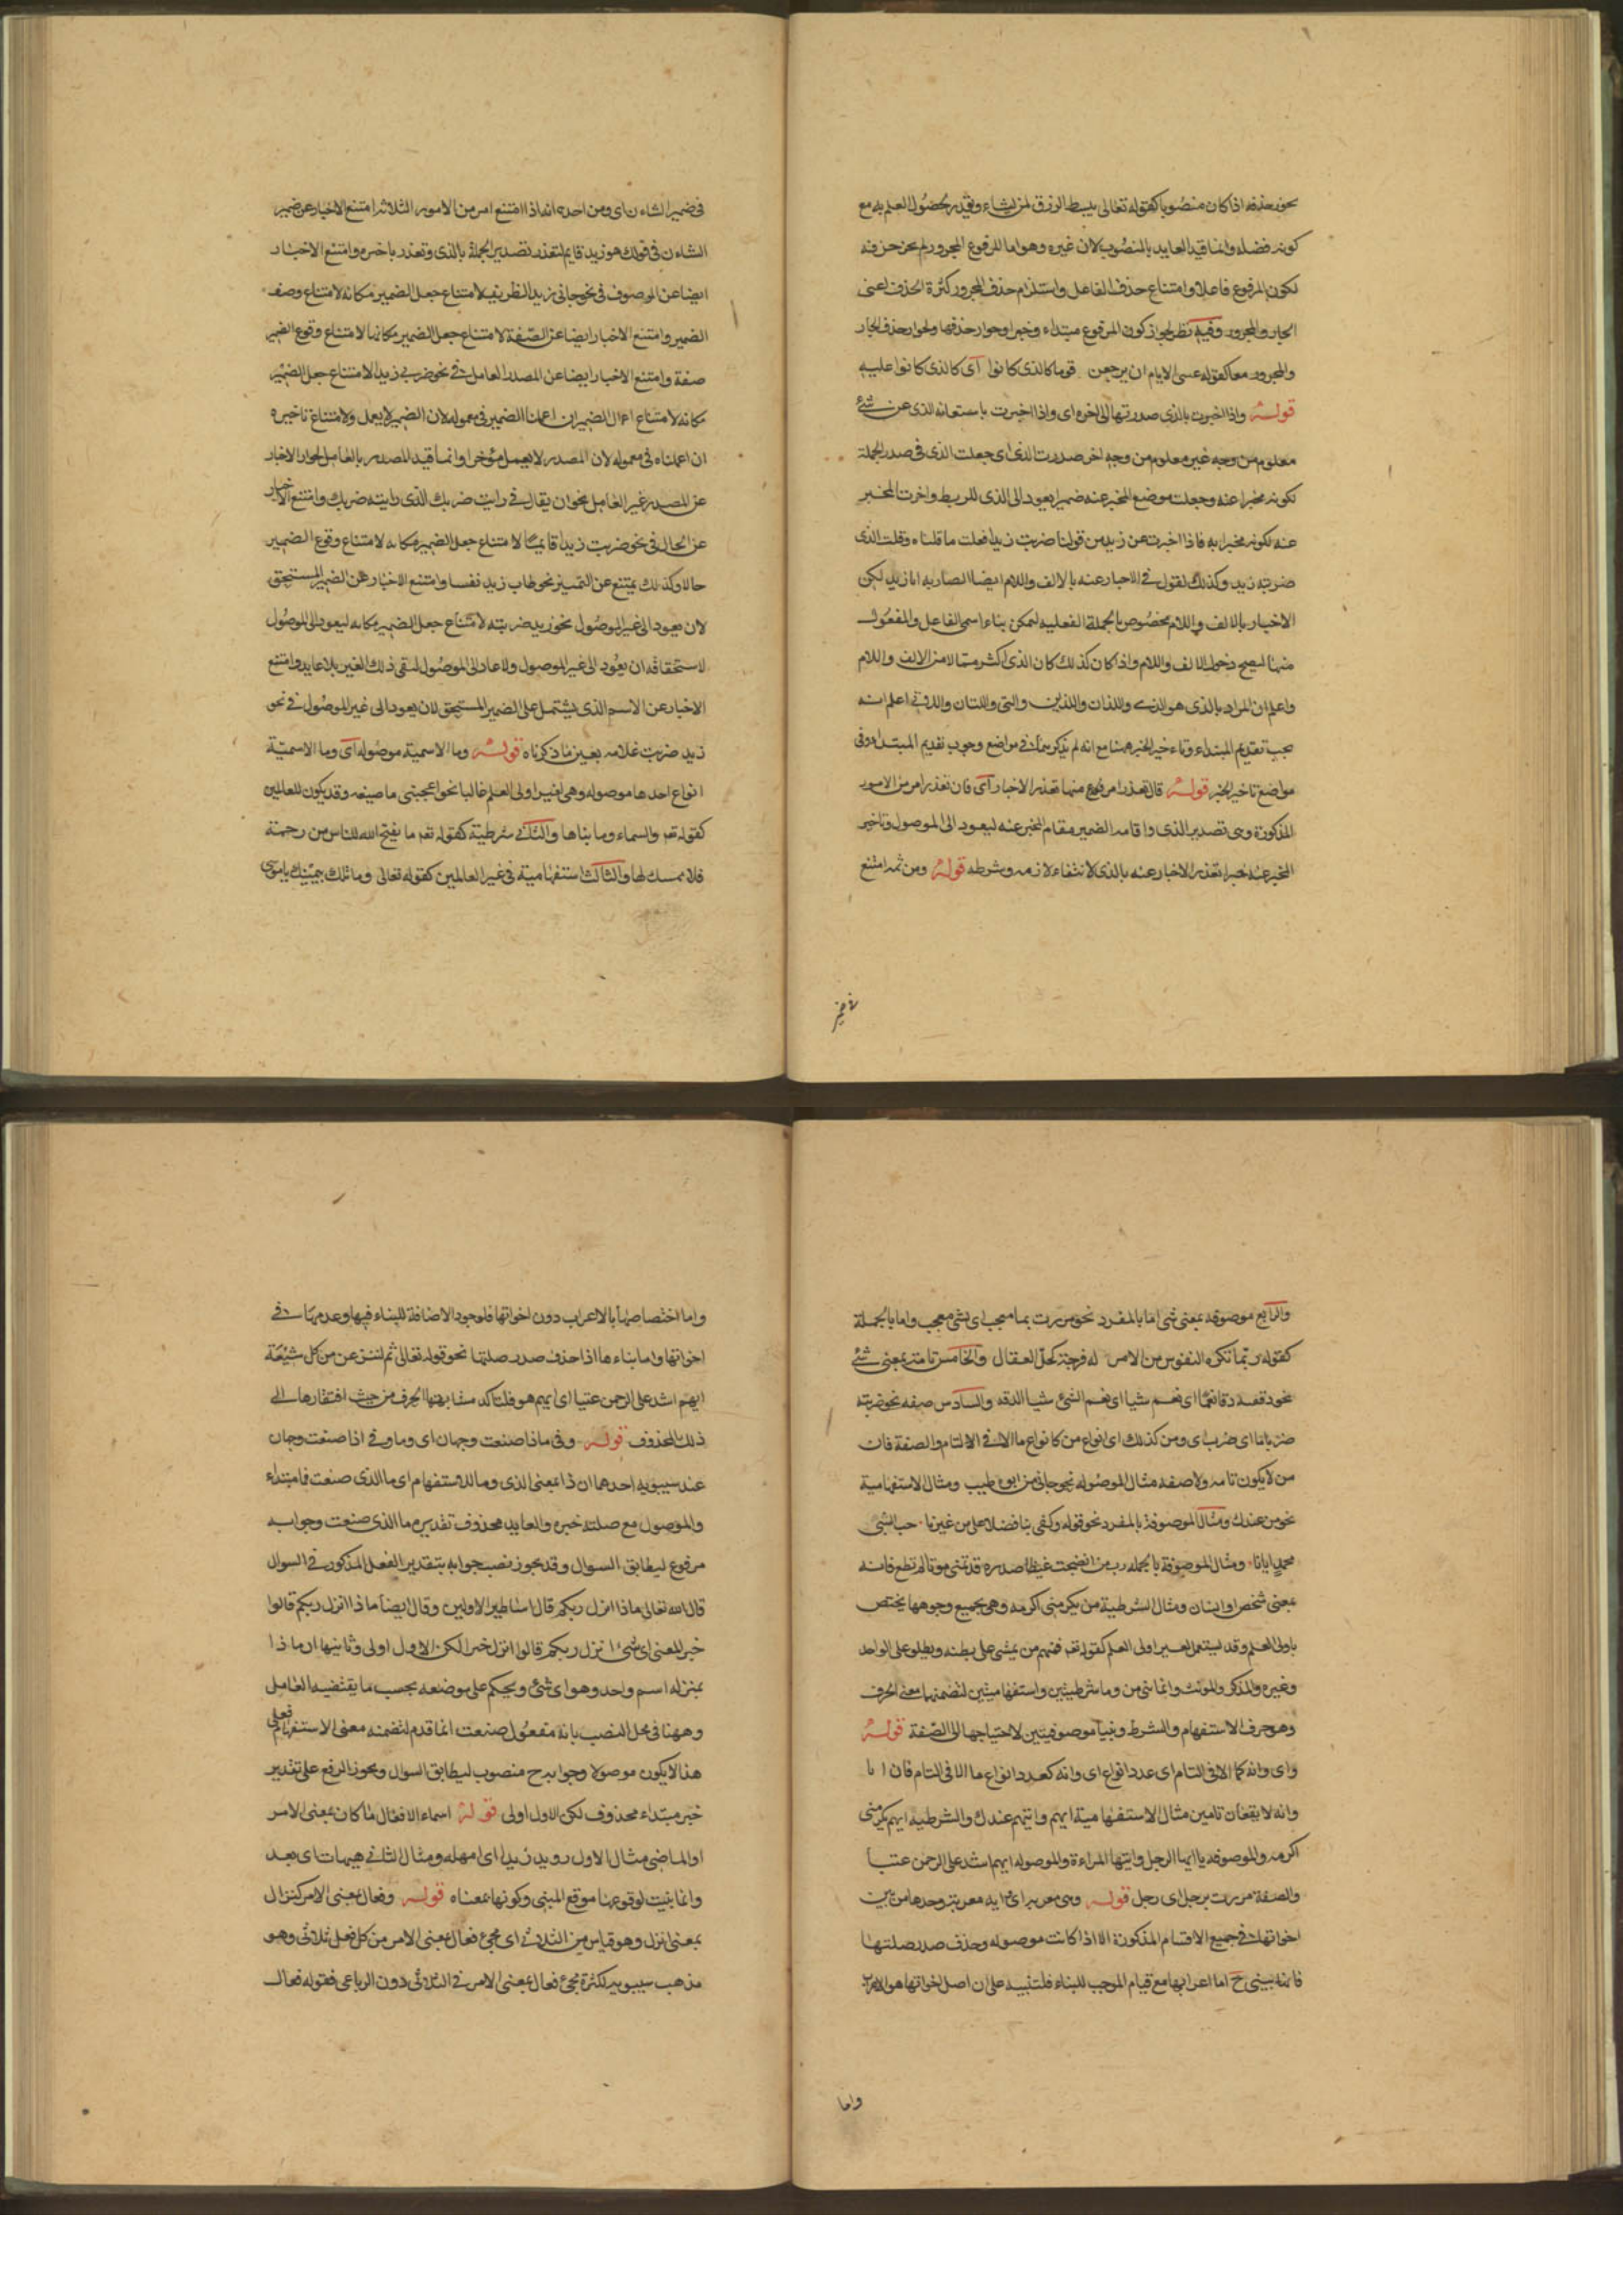 يجوز حذفه اذا كان منصوبا كقوله تعالى يبسط الرزق لمن يشاء ويقدر لحصول العلم به مع
كونه فضلة وانما قيد العايد بالمنصوب لان غيره وهو اما المرفوع المجرور لم يجز حذفه
لكون المرفوع فاعلا وامتناع حذف الفاعل واستلزام حذف المجرور كثرة الحذف اعنى
الجار والمجرور وفيه نظر لجواز كون المرفوع مبتداء وخبرا وجواز حذفهما ولجواز حذف الجار
والمجرور معا كقوله عسى الايام ان يرجعن قوما كالذى كانوا اى كالذى كانوا عليه
قوله واذا اخبرت بالذى صدرتها الى اخره اى واذا اخبرت باستعانة الذى عن شئ
معلوم من وجه غير معلوم من وجه اخر صدرت الذى اى جعلت الذى فى صدر الجملة
لكونه مخبرا عنه وجعلت موضع المخبر عنه ضميرا يعود الى الذى للربط واخرت المخبر
عنه لكونه مخبرا به فاذا اخبرت عن زيد من قولنا ضربت زيدا فعلت ما قلناه وقلت الذى
ضربته زيد وكذلك نقول فى الاخبار عنه بالالف واللام ايضا الضاربه انا زيد لكن
الاخبار بالالف واللام مخصوص بالجملة الفعلية ليمكن بناء اسمى الفاعل والمفعول
منها ليصح دخول الالف واللام واذا كان كذلك كان الذى اكثر من الالف واللام
واعلم ان المراد بالذى هو الذى واللذان واللذين والتى واللتان واعلم انه
يجب تقديم المبتداء وتاءخير الخبر ههنا مع انه لم يذكر هناك فى مواضع وجوب تقديم المبتداء وفى
مواضع تاخير الخبر قوله قال فان تعذر امر منها تعذر الاخبار اى فان تعذر امر من الامور
المذكورة وهى تصدير الذى واقامة الضمير مقام المخبر عنه ليعود الى الموصول وتاخير
المخبر عنه خبرا تعذر الاخبار عنه بالذى لانتفاء لازمه وشرطه قوله ومن ثمه امتنع
فى ضمير
فى ضمير الشاءن اى ومن احد انه اذا امتنع امر من الامور الثلاثة امتنع الاخبار عن ضمير
الشاءن فى قولك هو زيد قايم لتعذر تصدير الجملة بالذى وتعذر باخره وامتنع الاخبار
ايضا عن الموصوف فى نحو جانى زيد الظريف لامتناع جعل الضمير مكانه لامتناع وصف
الضمير وامتنع الاخبار ايضا عن الصفة لامتناع جعل الضمير مكانها لامتناع وقوع الضمير
صفة وامتنع الاخبار ايضا عن المصدر العامل فى نحو ضربى زيدا لامتناع جعل الضمير
مكانه لامتناع اعمال الضمير ان اعملنا الضمير فى معموله لان الضمير لا يعمل ولامتناع تاخيره
ان اعملناه فى معموله لان المصدر لا يعمل مؤخرا وانما قيد المصدر بالعامل لجواز الاخبار
عن المصدر غير العامل نحو ان يقال فى رايت ضربك الذى رايته ضربك وامتنع الاخبار
عن الحال فى نحو ضربت زيدا قايما لامتناع جعل الضمير مكانه لامتناع وقوع الضمير
حالا وكذلك يمتنع عن التمييز نحو طاب زيد نفسا وامتنع الاخبار عن الضمير المستحق
لان يعود الى غير الموصول نحو زيد ضربته لامتناع جعل الضمير مكانه ليعود الى الموصول
لاستحقاقه ان يعود الى غير الموصول ولا عاد الى الموصول لبقى ذلك الغير بلا عايد وامتنع
الاخبار عن الاسم الذى يشتمل على الضمير المستحق لان يعود الى غير الموصول فى نحو
زيد ضربت غلامه بعين ما ذكرناه قوله وما الاسمية موصوله اى وما الاسمية
انواع احدها موصوله وهى لغير اولى العلم غالبا نحو اعجبنى ما صنعه وقد يكون للعالمين
كقوله تعـ والسماء وما بناها والثانى شرطية كقوله تعـ ما يفتح الله للناس من رحمة
فلا ممسك لها والثالث استفهامية فى غير العالمين كقوله تعالى وما تلك بيمينك يا موسى
والرابع موصوفه بمعنى شئ اما بالمفرد نحو مررت بما معجب اى بشئ معجب واما بالجملة
كقوله ربما تكره النفوس من الامر له فرجة كحل العقال والخامس تامة بمعنى شئ
نحو دققه دقا نعما اى نعم شيا اى نعم الشئ شيا الدقه والسادس صفه نحو ضربته
ضربا ما اى ضرب اى ومن كذلك اى انواع من كانواع ما الا فى التام والصفة فان
من لا يكون تامه ولا صفه مثال الموصوله نحو جانى من ابوه طيب ومثال الاستفهامية
نحو من عندك ومثال الموصوفة بالمفرد نحو قوله وكفى بنا فضلا على من غيرنا حب النبى
محمد ايانا ومثال الموصوفة بالجمله رب من انضجت غيظا صدره قد تمنى موتا لم تطع فانه
بمعنى شخص او انسان ومثال الشرطية من يكرمنى اكرمه وهى بجميع وجوهها يختص
باولى العلم وقد يستعمل لغير اولى العلم كقوله تعـ فمنهم من يمشى على بطنه ويطلق على الواحد
وغيره والمذكر والمونث وانما بنى من وما شرطيتين واستفهاميتين لتضمنهما معنى الحرف
وهو حرف الاستفهام والشرط وبنيا موصوفتين لاحتياجها الى الصفة قوله
واى وايه كما الا فى التام اى عدد انواع اى وايه كعدد انواع ما الا فى التام فان ايا
وايه لا يقعان تامين مثال الاستفهامية ايهم وايتهم عندك والشرطية ايهم يكرمنى
اكرمه والموصوفه يا ايها الرجل وايتها المراءة والموصوله ايهم اشد على الرحمن عتيا
والصفة مررت برجل اى رجل قوله وهى معربه اى ايه معربة وحدها من بين
اخواتها فى جميع الاقسام المذكورة الا اذا كانت موصوله وحذف صدر صلتها
فانه يبنى ح اما اعرابها مع قيام الموجب للبناء فلتنبيه على ان اصل اخواتها هو الاعراب
واما
واما اختصاصها بالاعراب دون اخواتها فلوجود الاضافة للبناء فيها وعدمها فى
اخواتها واما بناءها اذا حذف صدر صلتها نحو قوله تعالى ثم لننزعن من كل شيعة
ايهم اشد على الرحمن عتيا اى ايهم هو فلتاكد مشابهتها الحرف من حيث افتقارها الى
ذلك المحذوف قوله وفى ماذا صنعت وجهان اى وما وفى اذا صنعت وجهان
عند سيبويه احدهما ان ذا بمعنى الذى وما للاستفهام اى ما الذى صنعت فما مبتداء
والموصول مع صلته خبره والعايد محذوف تقديره ما الذى صنعت وجوابه
مرفوع ليطابق السوال وقد يجوز نصب جوابه بتقدير الفعل المذكور فى السوال
قال الله تعالى ماذا انزل ربكم قال اساطير الاولين وقال ايضا ماذا انزل ربكم قالوا
خير المعنى اى شئ انزل ربكم قالوا انزل خيرا لكن الاول اولى وثانيها ان ماذا
بمنزله اسم واحد وهو اى شئ ويحكم على موضعه بحسب ما يقتضيه العامل
وههنا فى محل النصب بانه مفعول صنعت انما قدم لتضمنه معنى الاستفهام فعلى
هذا لا يكون موصولا وجوابه ح منصوب ليطابق السوال ويجوز الرفع على تقدير
خبر مبتداء محذوف لكن الاول اولى قوله اسماء الافعال ما كان بمعنى الامر
او الماضى مثال الاول رويد زيدا اى امهله ومثال الثانى هيهات اى بعد
وانما بنيت لوقوعها موقع المبنى وكونها بمعناه قوله وفعال بمعنى الامر كنزال
بمعنى انزل وهو قياس من الثلاثى اى مجئ فعال بمعنى الامر من كل فعل ثلاثى وهو
مذهب سيبويه لكثرة مجئ فعال بمعنى الامر فى الثلاثى دون الرباعى فقوله فعال